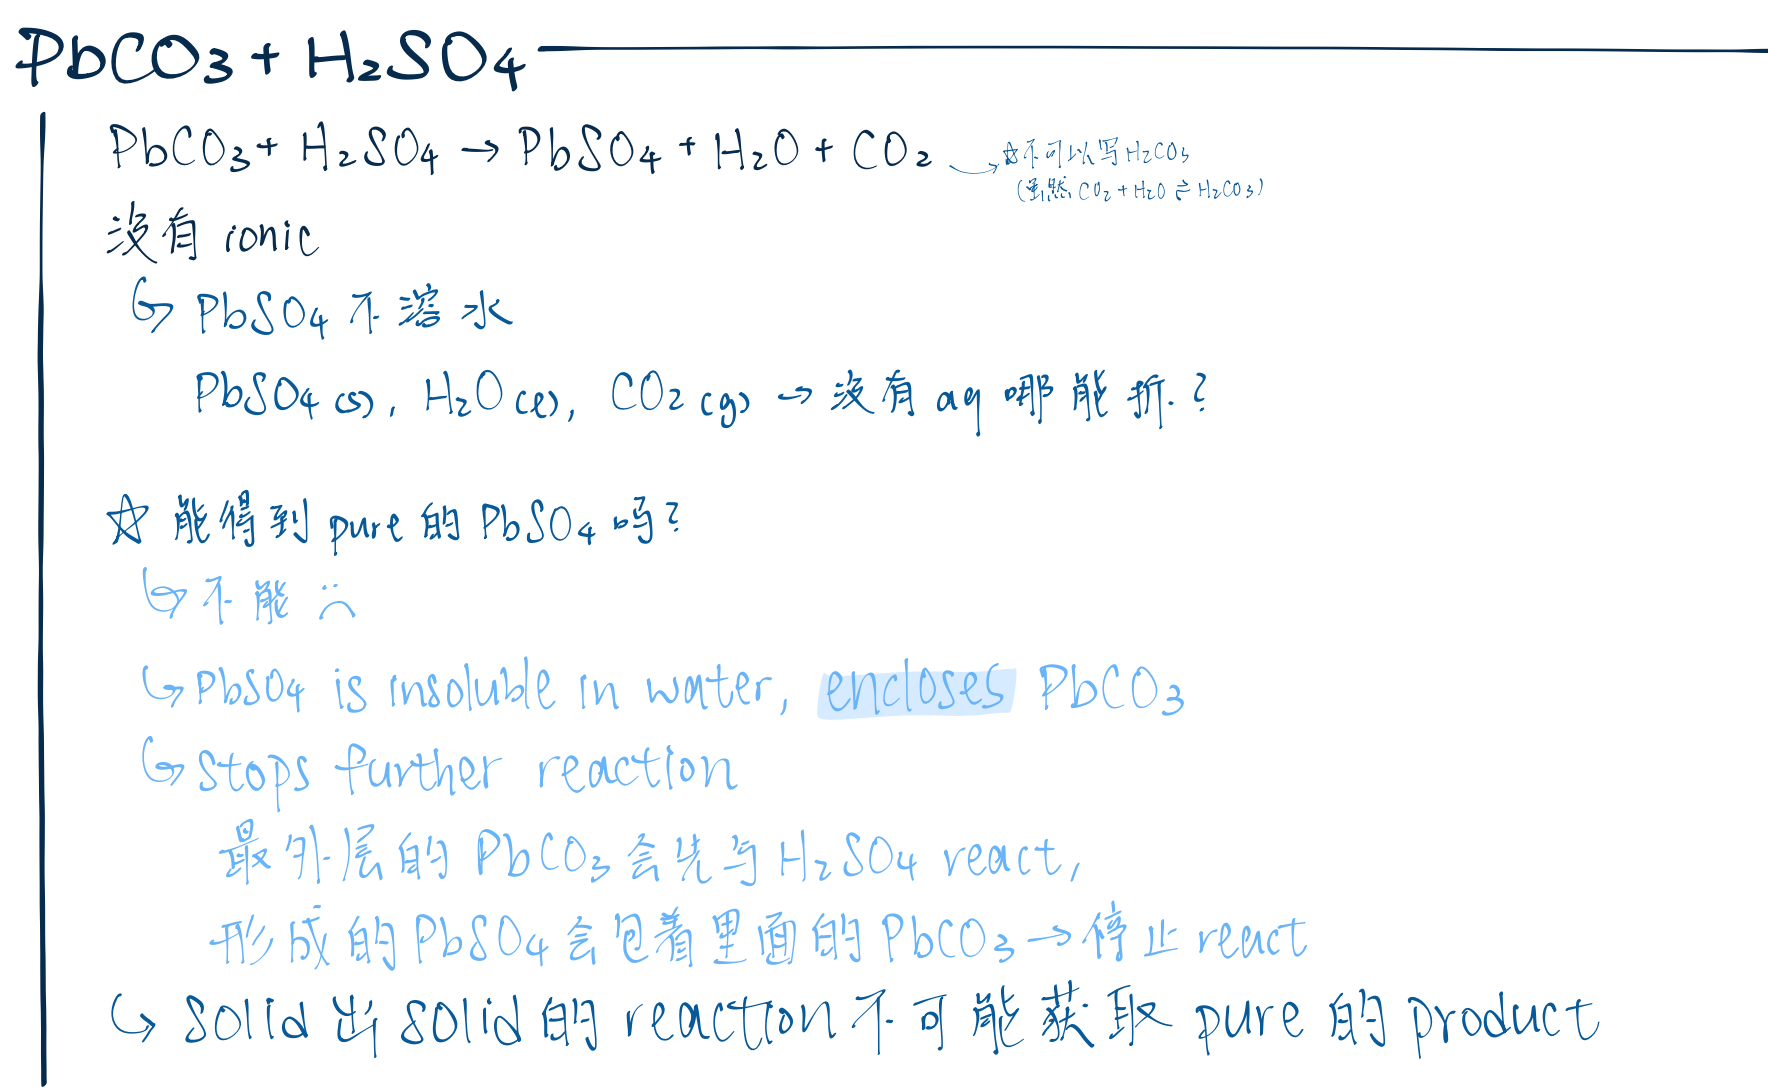 PbCO₃ + H₂SO₄
PbCO₃ + H₂SO₄ → PbSO₄ + H₂O + CO₂
☆不可以写H₂CO₃
(虽然 CO₂ + H₂O ⇌ H₂CO₃)
没有 ionic
↪ PbSO₄ 不溶水
PbSO₄(s), H₂O(l), CO₂(g) → 没有 aq 哪能拆?
☆ 能得到 pure 的 PbSO₄ 吗?
↪ 不能 :(
↪ PbSO₄ is insoluble in water, encloses PbCO₃
↪ Stops further reaction
最外层的 PbCO₃ 会先与 H₂SO₄ react,
形成的 PbSO₄ 会包着里面的 PbCO₃ → 停止 react
↪ solid 出 solid 的 reaction 不可能获取 pure 的 product